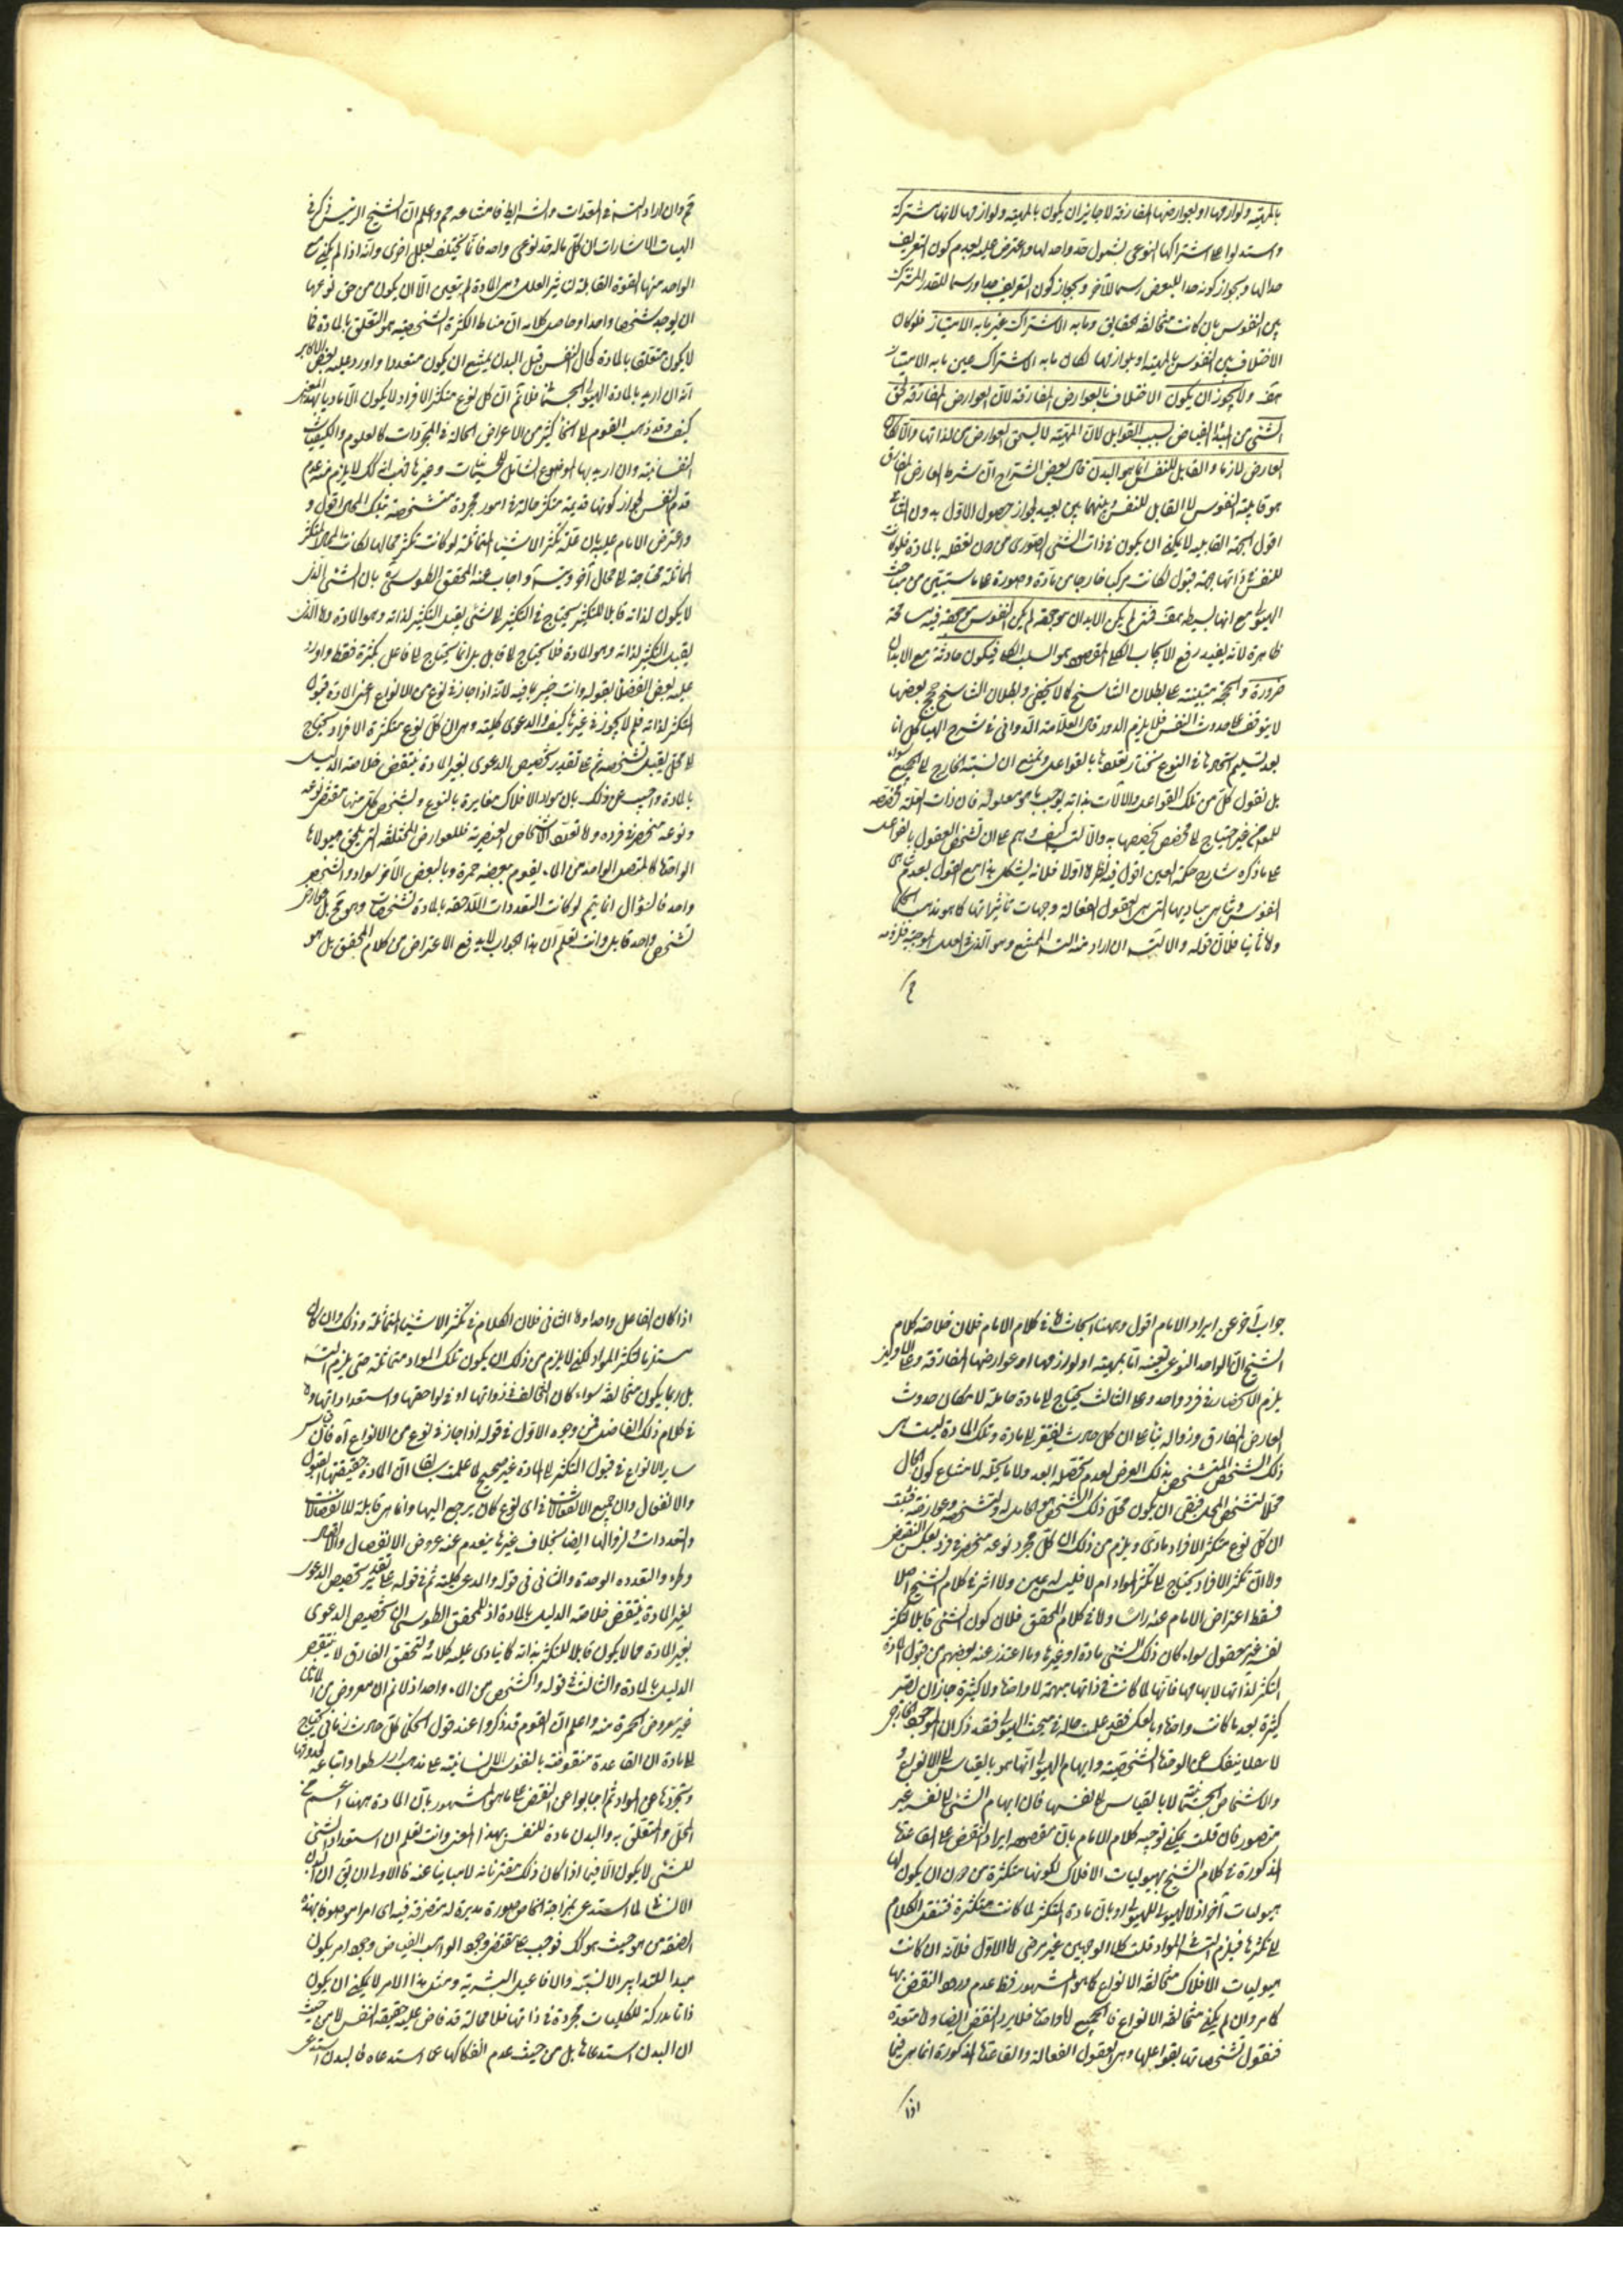 بالمهيّة ولوازمها او بعوارضها المفارقة لا جايز ان يكون بالمهيّة ولوازمها لانها مشتركة
واستدلوا على اشتراكها النوعى بشمول حدّ واحد لها واعترض عليه بعدم كون التعريف
حدا لها وبجواز كونه حدا للبعض رسما للآخر وبجواز كون التعريف حدا ورسما للقدر المشترك
بين النفوس بان كانت متخالفة الحقايق وما به الاشتراك غير ما به الامتياز فلو كان
الاختلاف بين النفوس بالمهية او بلوازمها لكان ما به الاشتراك عين ما به الامتياز
هف ولا يجوز ان يكون الاختلاف بالعوارض المفارقة لان العوارض المفارقة تلحق
الشئ من المبدأ الفياض بسبب القوابل لان المهيّة لا تستحق العوارض من لذاتها والا لكان
العارض لازما والقابل للنفس انما هو البدن قال بعض الشراح ان شرط العارض المفارق
هو قابلية النفوس لا القابل للنفس وبينهما بين بعيد لجواز حصول الاول بدون الثانى
اقول الجهة القابلية لا يمكن ان يكون فى ذات الشئ الصورى من دون تعلقه بالمادة فلو كانت
للنفس فى ذاتها جهة قبول لكانت مركبا خارجا من مادة وصورة على ما سيتبين من مباحث
الهيولى مع انها بسيطة هف فمتى لم يكن الابدان موجودة لم يكن النفوس موجودة فيه مسامحة
ظاهرة لانه يفيد رفع الايجاب الكلى والمقصود هو السلب الكلى فيكون حادثة مع الابدان
ضرورة والحجة مبتنية على بطلان التناسخ كما لا يخفى ولبطلان التناسخ حجج بعضها
لا يتوقف على حدوث النفس فلا يلزم الدور قال العلامة الدوانى فى شرح الهياكل انا
بعد تسليم اتحادها فى النوع نختار تعلقها بالقواعل ونمنع ان نسبة الخارج الى الجميع سواء
بل نقول كل من تلك القواعل والآلات بذاته يوجب ما هو معلوله فان ذات العلة مخصصة
للمعلول من غير احتياج الى مخصص يخصصها به والا لتسلسل كيف وهم على ان تشخص العقول بالفواعل
على ما ذكره شارح حكمة العين اقول فيه نظر اما اولا فلانه يشكل هذا مع القول بعدم تناهى
النفوس وتناهى مباديها التى هى العقول الفعالة وجهات تأثيراتها كما هو مذهب الحكماء
واما ثانيا فلان قوله والا لتسلسل ان اراد منه التسلسل الممتنع وهو الذى فى العلل الموجبة فلزومه
مم
مم وان اراد التسلسل فى المعدات والشرائط فامتناعه مم واعلم ان الشيخ الرئيس ذكر فى
الهيات الاشارات ان كل ما له حد نوعى واحد فانما يختلف بعلل اخرى وانه اذا لم يكن مع
الواحد منها القوة القابلة لتأثير العلل وهى المادة لم يتعين الا ان يكون من حق نوعها
ان يوجد شخصا واحدا وحاصل كلامه ان مناط الكثرة الشخصية هو التعلق بالمادة فما
لا يكون متعلقا بالمادة كحال النفس قبل البدن يمتنع ان يكون متعددا واورد عليه بعض الاكابر
انه ان اريد بالمادة الهيولى الجسمية فلا نم ان كل نوع متكثر الافراد لا يكون الا ماديا بهذا المعنى
كيف وقد ذهب القوم الى انحاء كثيرة من الاعراض الحالة فى المجردات كالعلوم والكيفيات
النفسانية وان اريد بها الموضوع الشامل للجسميات وغيرها فبعد ذلك لا يلزم منه عدم
قدم النفس لجواز كونها قديمة متكثرة حالة فى امور مجردة متشخصة بتلك المحال اقول و
واعترض الامام عليه بان علة تكثر الاشياء المتماثلة لو كانت تكثر محالها لكانت المحال المتكثرة
المماثلة محتاجة الى محال آخر وتسلسل واجاب عنه المحقق الطوسى بان الشئ الذى
لا يكون لذاته قابلا للتكثر يحتاج فى التكثر الى شئ يقبل التكثر لذاته وهو المادة واما الذى
يقبل التكثر لذاته وهو المادة فلا يحتاج الى قابل بل انما يحتاج الى فاعل يكثره فقط واورد
عليه بعض الفضلاء بقوله وانت خبير بما فيه لانه اذا جاز فى نوع من الانواع اعنى المادة قبول
التكثر لذاته فلم لا يجوز فى غيرها كيف والدعوى كلية وهى ان كل نوع متكثرة الافراد يحتاج
الى محل يقبل تشخصه ثم على تقدير تخصيص الدعوى بغير المادة ينتقض خلاصة الدليل
بالمادة واجيب عن ذلك بان مواد الافلاك متغايرة بالنوع وتشخص كل منها مقتضى نوعه
ونوعه منحصر فى فرده واما تعدد الاشخاص العنصرية فللعوارض المختلفة التى يلحق هيولاها
الواحدة كالمتصل الواحد من الماء يقوم ببعضه حمرة وبالبعض الآخر سواد والشخص
واحد فالسؤال انما يتم لو كانت التعددات اللاحقة بالمادة تشخصات وهو مم بل عوارض
تشخص واحد قابل وانت تعلم ان هذا الجواب لا يدفع الاعتراض من كلام المحقق بل هو
جواب آخر عن ايراد الامام اقول وههنا ابحاث اما فى كلام الامام فلان خلاصة كلام
الشيخ ان الواحد النوعى تعينه اما بمهيته او لوازمها او عوارضها المفارقة وعلى الاولين
يلزم الانحصار فى فرد واحد وعلى الثالث يحتاج الى مادة حاملة لامكان حدوث
العارض المفارق وزواله بناء على ان كل حادث يفتقر الى مادة وتلك المادة ليست هى
ذلك الشخص المتشخص بذلك العرض لعدم تحصله بعد ولا ما يحله لامتناع كون الحال
محلا لتشخص المحل فبقى ان يكون محل ذلك الشخص هو الحامل له ولتشخصه وعوارضه فثبت
ان كل نوع متكثر الافراد مادى ويلزم من ذلك ان كل مجرد نوعه منحصر فى فرد بعكس النقيض
واما ان تكثر الافراد يحتاج الى تكثر المواد ام لا فليس له عين ولا اثر فى كلام الشيخ اصلا
فسقط اعتراض الامام عنه رأسا واما فى كلام المحقق فلان كون الشئ قابلا لتكثر
نفسه غير معقول سواء كان ذلك الشئ مادة او غيرها وما اعتذر عنه بعضهم من قبول المادة
التكثر لذاتها لابهامها فانها لما كانت فى ذاتها مبهمة لا واحدة ولا كثيرة جاز ان تصير
كثيرة بعد ما كانت واحدة وبالعكس فقد علمت حاله فى مبحث الهيولى فقد ذكر ان الموجود الخارجى
لا محالة لا ينفك عن الوحدة الشخصية وابهام الهيولى انما هو بالقياس الى الانواع و
والاشخاص الجسمية لا بالقياس الى نفسها فان ابهام الشئ الى نفسه غير
متصور فان قلت يمكن توجيه كلام الامام بان مقصوده ايراد النقض على القاعدة
المذكورة فى كلام الشيخ بهيوليات الافلاك لكونها متكثرة من دون ان يكون لها
هيوليات آخر اذ لا هيولى للهيولى او بان مادة المتكثر لما كانت متكثرة فننقل الكلام
الى تكثرها فيلزم التسلسل فى المواد قلت كلا الوجهين غير مرضى اما الاول فلانه ان كانت
هيوليات الافلاك متخالفة الانواع كما هو المشهور فظ عدم ورود النقض بها
كما مر وان لم يكن متخالفة الانواع فالجميع اما واحدة فلا يرد النقض ايضا واما متعددة
فنقول تشخصاتها بفواعلها وهى العقول الفعالة والقاعدة المذكورة انما هى فيما
اذا
اذا كان الفاعل واحدا واما الثانى فلان الكلام فى تكثر الاشياء المتماثلة وذلك وان كان
مستلزما لتكثر المواد لكن لا يلزم من ذلك ان يكون تلك المواد متماثلة حتى يلزم التسلسل
بل ربما يكون متخالفة سواء كان التخالف فى ذواتها او فى لواحقها واستعداداتها واما
فى كلام ذلك الفاضل فمن وجوه الاول فى قوله اذا جاز فى نوع من الانواع آه فان قياس
ساير الانواع فى قبول التكثر الى المادة غير صحيح لما علمت سابقا ان المادة حقيقتها القبول
والانفعال وان جميع الانفعالات فى اى نوع كان يرجع اليها وانما هى قابلة للانفصالات
والتعددات ولزوالها ايضا بخلاف غيرها ينعدم عند عروض الانفصال والاتصال
وطرء والتعدد والوحدة والثانى فى قوله والدعوى كلية ثم فى قوله على تقدير تخصيص الدعوى
بغير المادة ينتقض خلاصة الدليل بالمادة اذ للمحقق الطوسى ان تخصيص الدعوى
بغير المادة مما لا يكون قابلا للتكثر بذاته كما ينادى عليه كلامه ولتحقق الفارق لا ينتقض
الدليل بالمادة والثالث فى قوله والشخص من الماء واحد اذ لا نم ان معروض السواد من الماء
غير معروض الحمرة منه واعلم ان القوم قد ذكروا عند قول الحكماء كل حادث زمانى يحتاج
الى مادة ان القاعدة منقوضة بالنفوس الانسانية على مذهب ارسطو واتباعه لحدوثها
وتجردها عن المواد ثم اجابوا عن النقض على ما هو المشهور بان المادة ههنا اعم من
المحل والمتعلق به والبدن مادة للنفس بهذا المعنى وانت تعلم ان استعداد الشئ
للشئ لا يكون الا فيما اذا كان ذلك مقترنا به لا مباينا عنه فالاولى ان يق ان البدن
الانسانى لما استدعى بمزاجه الخاص صورة مدبرة له متصرفة فيه اى امرا موصوفا بهذه
الصفة من هو حيث هو كذلك فوجب على مقتضى وجود الواهب الفياض وجود امر يكون
مبدأ للتدابير الانسية والافاعيل البشرية ومثل هذا الامر لا يمكن ان يكون
ذاتا مدركة للكليات مجردة فى ذاتها فلا محالة قد فاض عليه حقيقة النفس لا من حيث
ان البدن استدعاها بل من حيث عدم انفكاكها عما استدعاه فالبدن استدعى